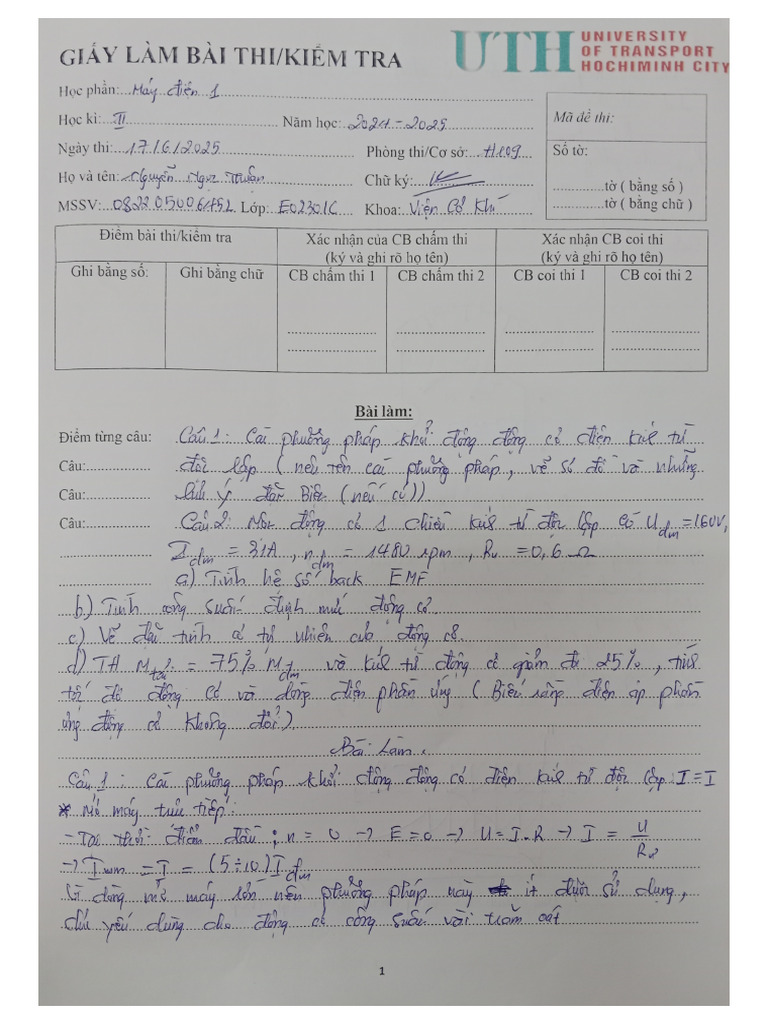 GIẤY LÀM BÀI THI/KIỂM TRA
UTH UNIVERSITY
OF TRANSPORT
HOCHIMINH CITY
Học phần: Máy điện 1
Học kì: II Năm học: 2024-2025
Mã đề thi:
Ngày thi: 17/6/2025 Phòng thi/Cơ sở:
Số tờ:
Họ và tên: Nguyễn Ngọc Chữ ký:
............tờ ( bằng số )
MSSV: Lớp: E02301C Khoa: Viện Cơ Khí
............tờ ( bằng chữ )
Điểm bài thi/kiểm tra
Xác nhận của CB chấm thi
(ký và ghi rõ họ tên)
Xác nhận CB coi thi
(ký và ghi rõ họ tên)
Ghi bằng số: Ghi bằng chữ CB chấm thi 1 CB chấm thi 2 CB coi thi 1 CB coi thi 2
Bài làm:
Điểm từng câu: Câu 1: Các phương pháp khởi động động cơ điện kích từ
Câu:................ độc lập (nêu tên các phương pháp, vẽ sơ đồ và những
Câu:................ lưu ý đặc biệt (nếu có))
Câu:................ Câu 2: động cơ 1 chiều kích từ độc lập có Uđm = 160V,
Iđm = 31A, nđm = 1480 rpm, Rư = 0,6 Ω
a) Tính hệ số back EMF
b.) Tính công suất định mức động cơ.
c.) Vẽ đặc tính cơ tự nhiên của động cơ.
d) TH Mtải = 75% Mđm và kích từ động cơ giảm đi 25%, tính
tốc độ động cơ và dòng điện phần ứng (Biết rằng điện áp phần
ứng động cơ không đổi)
Bài Làm.
Câu 1: Các phương pháp khởi động động cơ điện kích từ độc lập: I = I
* Mở máy trực tiếp:
- Tại thời điểm đầu: n = 0 → E = 0 → U = I.R → I = U/Rư
→ Imm = I = (5÷10)Iđm
Vì dòng mở máy lớn nên phương pháp này ít được sử dụng,
chủ yếu dùng cho động cơ công suất vài trăm oát
1